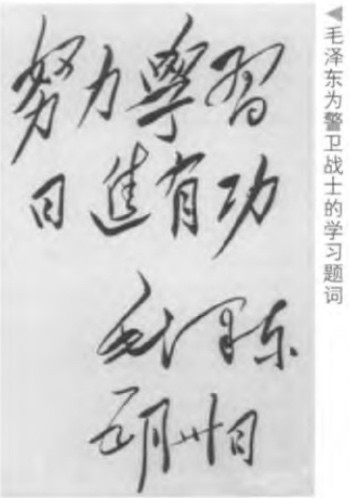 努力學習
日進有功
毛澤东
五月卅日
◀毛泽东为警卫战士的学习题词